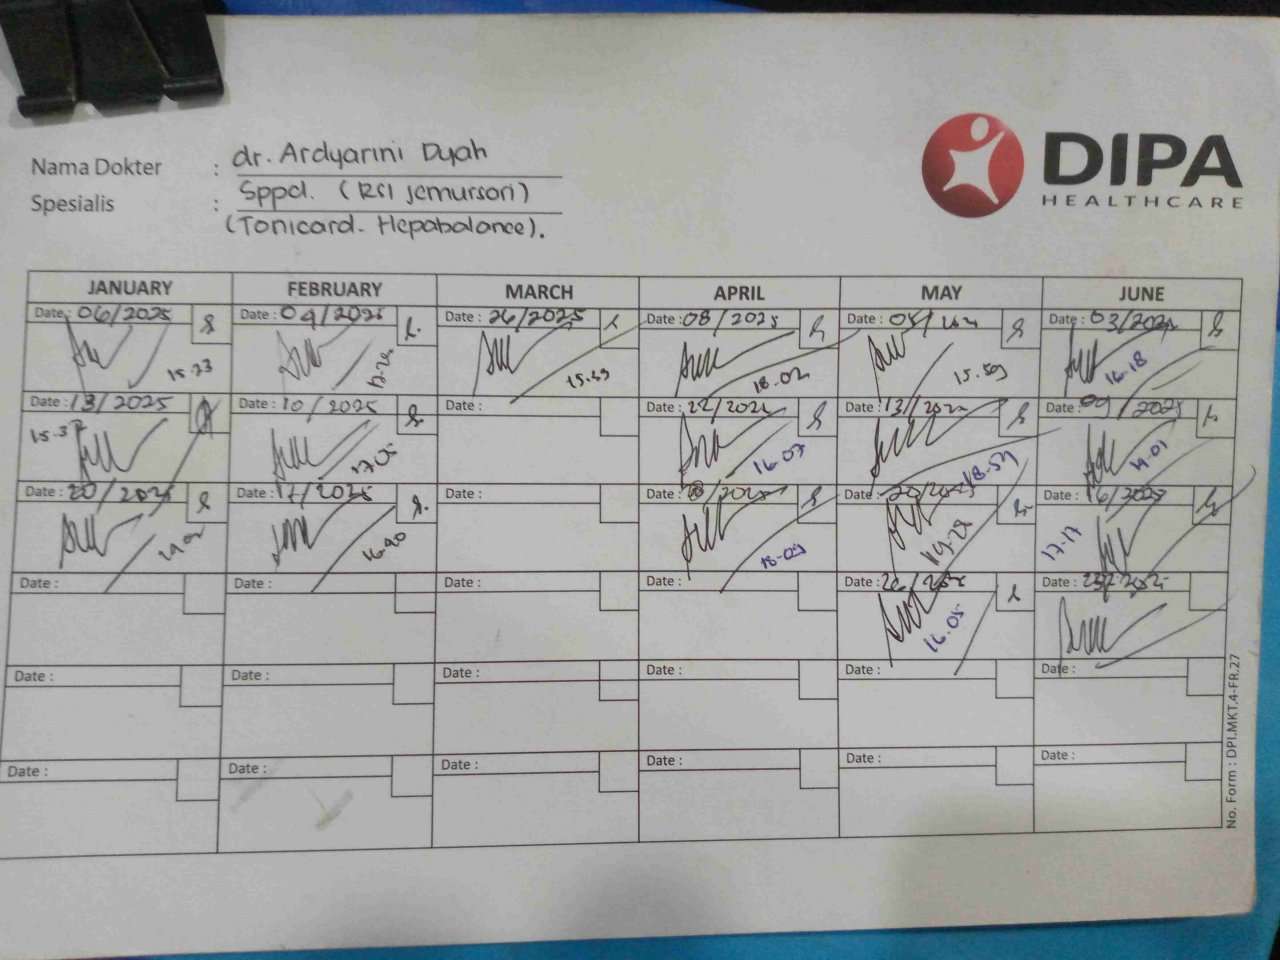 DIPA
HEALTHCARE
Nama Dokter : dr. Ardyarini Dyah
Spesialis : Sppd. (RSI Jemursari)
(Tonicard. Hepabalance).
JANUARY FEBRUARY MARCH APRIL MAY JUNE
Date: 06/2025 Date: 04/2025 Date: 26/2025 Date: 08/2025 Date: Date: 03/2025
15.33 15.59 18.02 15.59 16.18
Date: 13/2025 Date: 10/2025 Date: Date: 22/ Date: 13/ Date: 09/2025
15.3 17.05 16.07 18.59 14.01
Date: 20/2025 Date: 17/2025 Date: Date: /2025 Date: 20/2025 Date: 16/2025
16.40 18.09 19.28 17.17
Date: Date: Date: Date: Date: 26/ Date: 23/2025
16.05
Date: Date: Date: Date: Date: Date:
Date: Date: Date: Date: Date: Date:
No. Form : DPI.MKT.4-FR.27